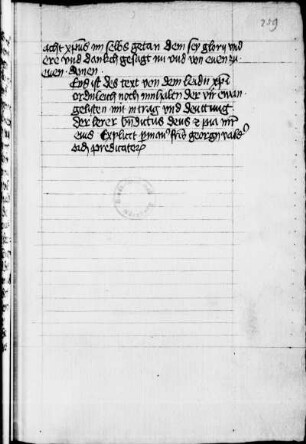 259
acht xpūs in selbs getan dem sey glory vnd
ere vnd danckch gesagt nu vnd von ewen zu
ewen · Amen ·
End ist des text von dem leidn xpi
ordnleich noch innhalten der vir ewan
gelisten mit in trag vnd deuttung
der lerer bndictus deus et pia mr
eius Explicit manu fris georgy
ordis predicatorum